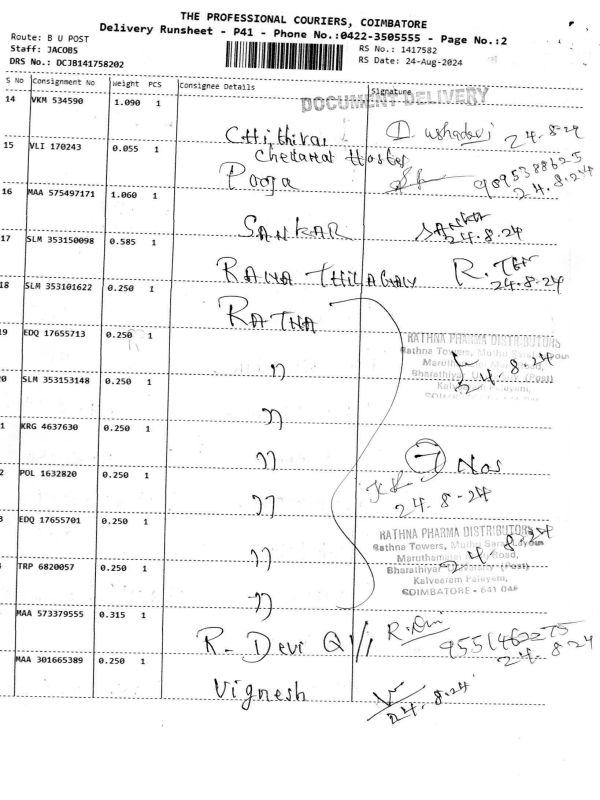 THE PROFESSIONAL COURIERS, COIMBATORE
Delivery Runsheet - P41 - Phone No.:0422-3505555 - Page No.:2
Route: B U POST
Staff: JACOBS
DRS No.: DCJB141758202
RS No.: 1417582
RS Date: 24-Aug-2024
S No Consignment No Weight PCS Consignee Details Signature
DOCUMENT DELIVERY
14 VKM 534590 1.090 1
Chithirai D. ushadevi 24.8-24
15 VLI 170243 0.055 1
Pooja 9895388625
24.8.24
16 MAA 575497171 1.060 1
SANKAR SANKAR
24.8.24
17 SLM 353150098 0.585 1
RAMA R.
24.8.24
18 SLM 353101622 0.250 1
RATNA
RATHNA PHARMA DISTRIBUTORS
Rathna Towers, Muthu
24.8.24
9 EDQ 17655713 0.250 1
"
0 SLM 353153148 0.250 1
"
1 KRG 4637630 0.250 1
"
2 POL 1632820 0.250 1
" 24.8-24
3 EDQ 17655701 0.250 1
"
RATHNA PHARMA DISTRIBUTORS
Rathna Towers, Muthu
Road,
Bharathiyar (Post)
Kalveeram Palayam,
COIMBATORE - 641 046
24.8.24
TRP 6820057 0.250 1
"
MAA 573379555 0.315 1
R. Devi R. Devi
24.8.24
MAA 301665389 0.250 1
Vignesh
24.8.24